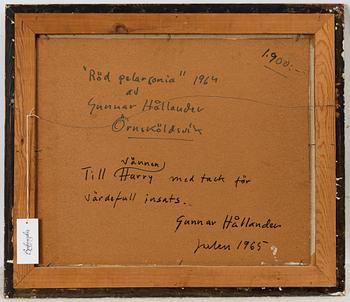 1.900:-
"Röd pelargonia" 1964
av
Gunnar Hållander
Örnsköldsvik
vännen
Till Harry med tack för
värdefull insats..
Gunnar Hållander
Julen 1965